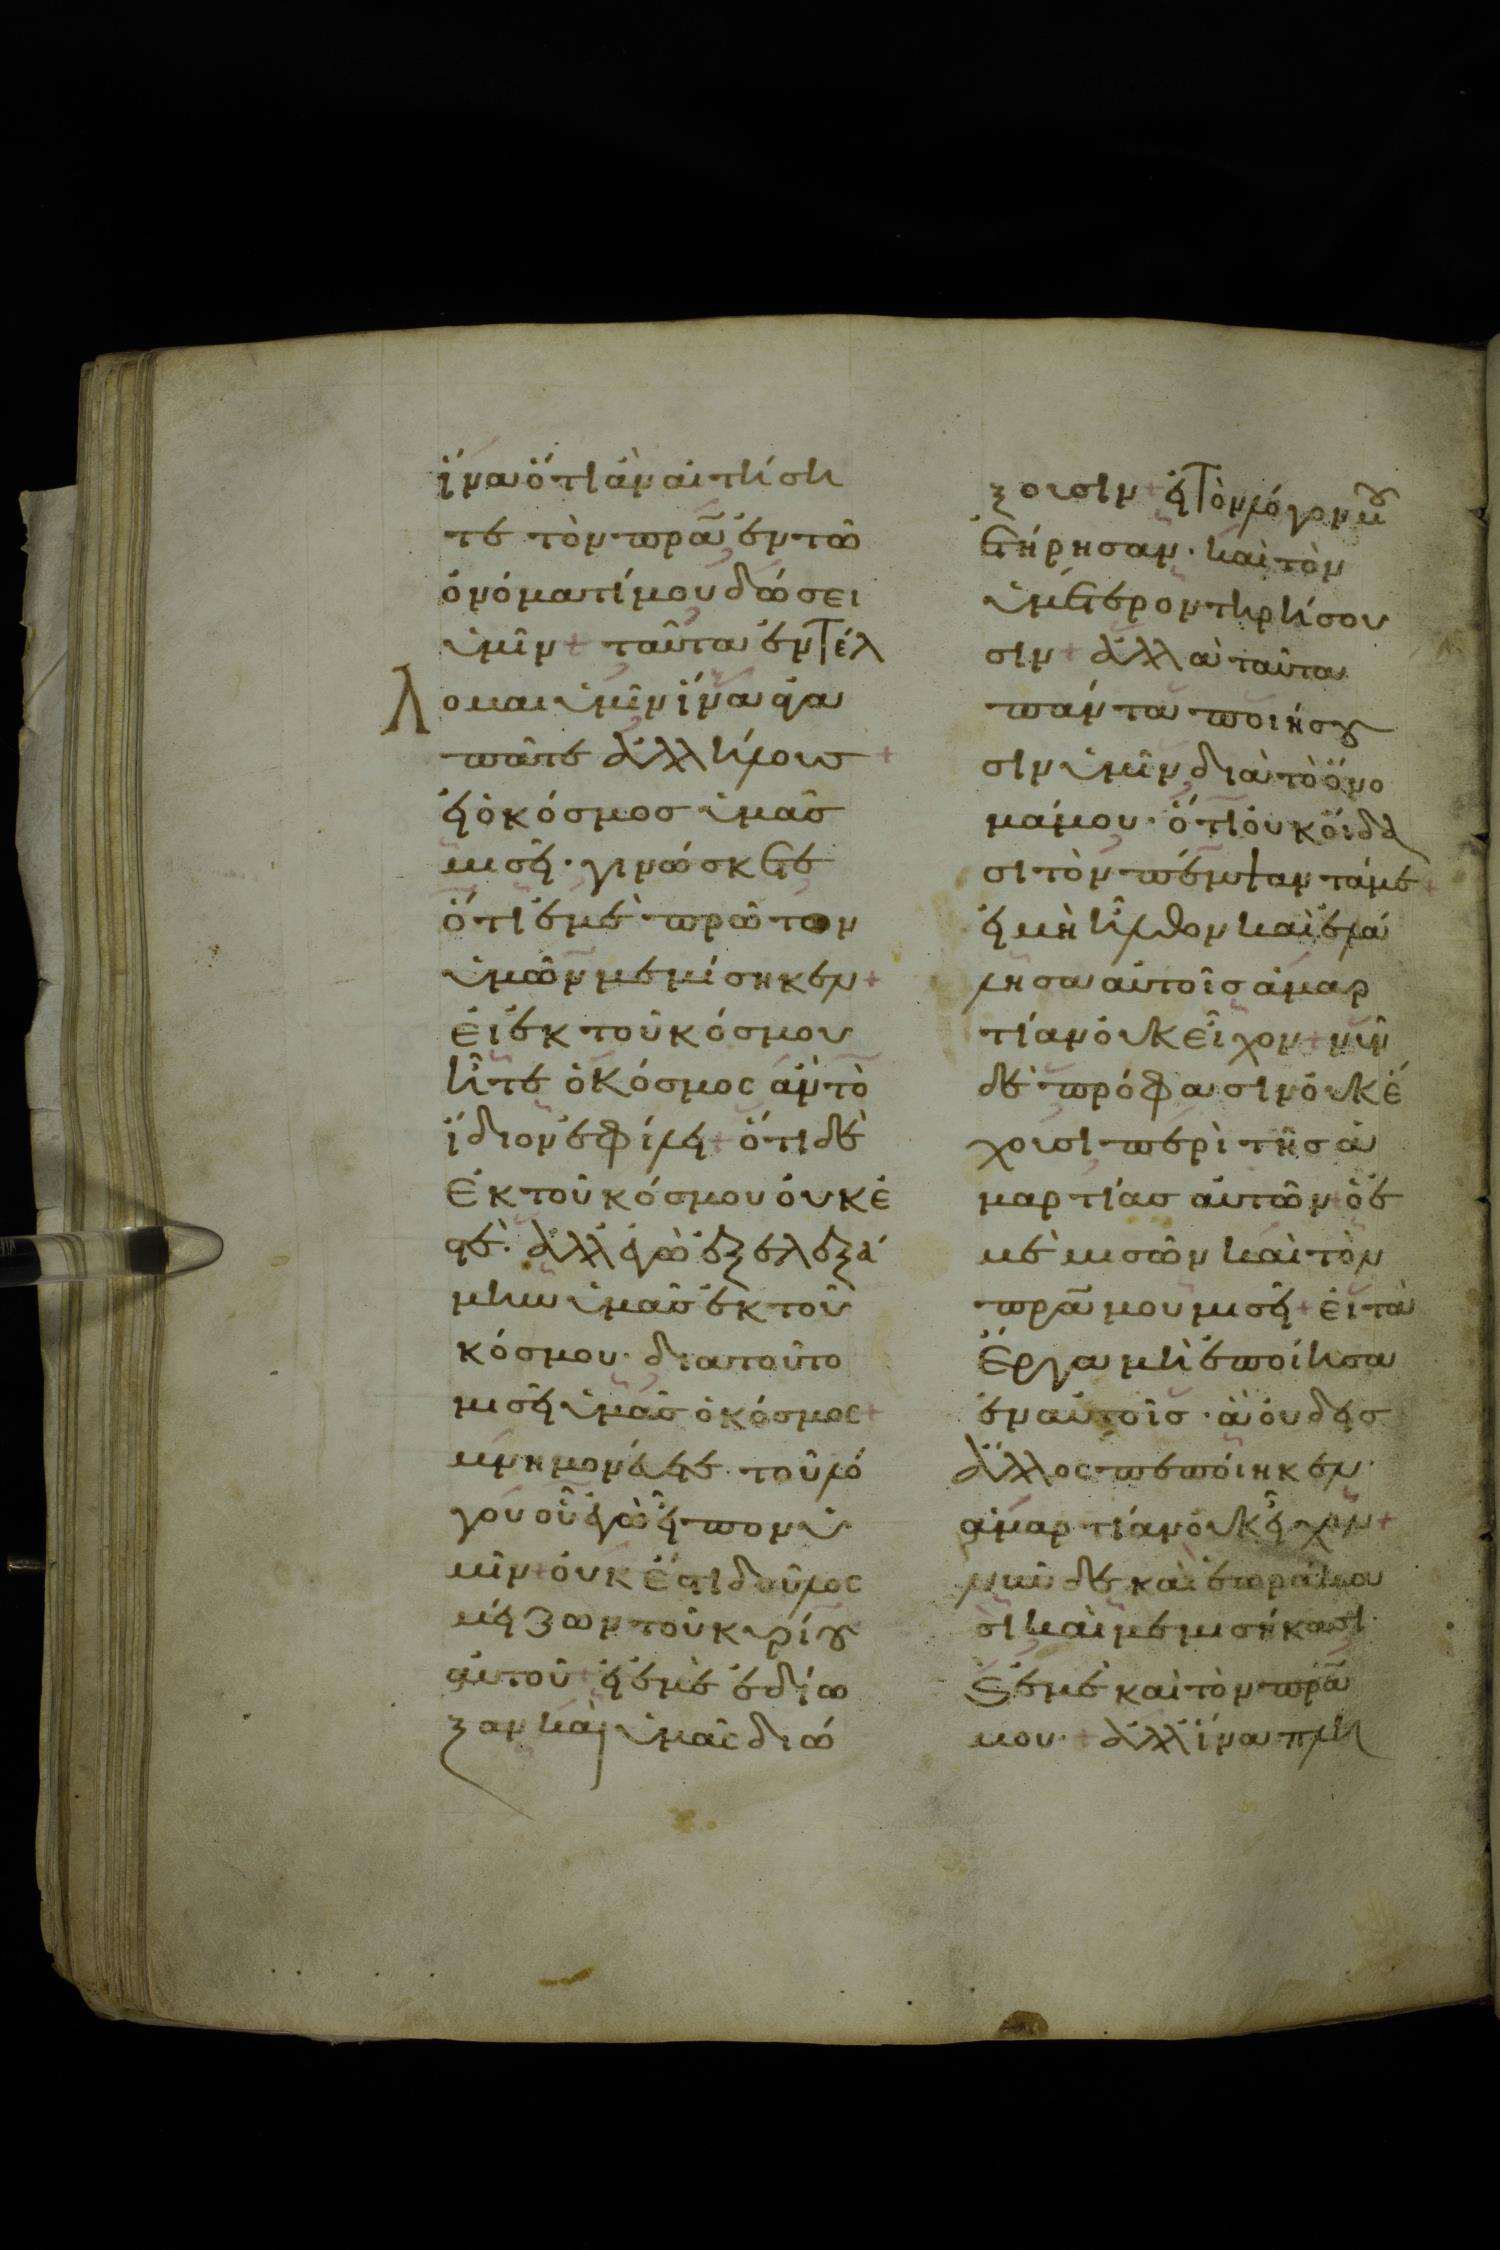 ἵνα ὅτι ἂν αἰτήση
τε τὸν πρᾱ ἐν τῶ
ὀνόματί μου δώσει
ὑμῖν + ταῦτα ἐντέλ
λομαι ὑμῖν ἵνα ἀγα
πᾶτε ἀλλήλους +
εἰ ὁ κόσμος ὑμᾶς
μισεῖ · γινώσκετε
ὅτι ἐμὲ πρῶτον
ὑμῶν μεμίσηκεν +
εἰ ἐκ τοῦ κόσμου
ἦτε ὁ κόσμος ἂν τὸ
ἴδιον ἐφίλει + ὅτι δὲ
ἐκ τοῦ κόσμου οὐκ ἐ
στὲ · ἀλλ ἐγὼ ἐξελεξά
μην ὑμᾶς ἐκ τοῦ
κόσμου · διατοῦτο
μισεῖ ὑμᾶς ὁ κόσμος +
μνημονεύετε τοῦ λό
γου οὗ ἐγὼ εἶπον ὑ
μῖν + οὐκ ἔστι δοῦλος
μείζων τοῦ κυρίου
αὐτοῦ + εἰ ἐμὲ ἐδίω
ξαν καὶ ὑμᾶς διώ
ξουσιν + εἰ τὸν λόγον μου
ἐτήρησαν · καὶ τὸν
ὑμέτερον τηρήσου
σιν + ἀλλὰ ταῦτα
πάντα ποιήσου
σιν ὑμῖν διὰ τὸ ὄνο
μά μου · ὅτι οὐκ οἴδα
σι τὸν πέμψαντά με +
εἰ μὴ ἦλθον καὶ ἐλά
λησα αὐτοῖς ἁμαρ
τίαν οὐκ εἶχον + νῦν
δὲ πρόφασιν οὐκ ἔ
χουσι περὶ τῆς ἁ
μαρτίας αὐτῶν + ὁ ἐ
μὲ μισῶν καὶ τὸν
πρᾱ μου μισεῖ + εἰ τὰ
ἔργα μὴ ἐποίησα
ἐν αὐτοῖς · ἃ οὐδεὶς
ἄλλος πεποίηκεν ·
ἁμαρτίαν οὐκ εἶχον +
νῦν δὲ καὶ ἑωράκα
σι καὶ μεμισήκασι ·
καὶ ἐμὲ καὶ τὸν πρᾱ
μου · + ἀλλ ἵνα πλη